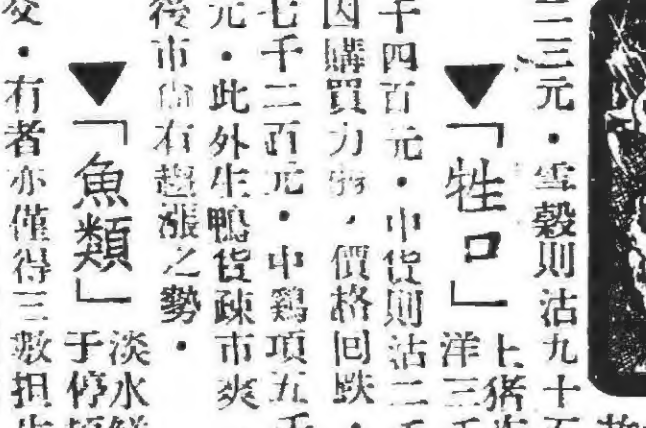 二三元・雪穀則沽九十
▼「牲口」上猪
洋三
千四百元・中货則沽二
因購買力弱・價格回跌・
七千二百元・中鷄項五
元・此外生鴨货疎市爽
後市尚有趨漲之勢・
▼「魚類」淡水
于停
・有者亦僅得三數担